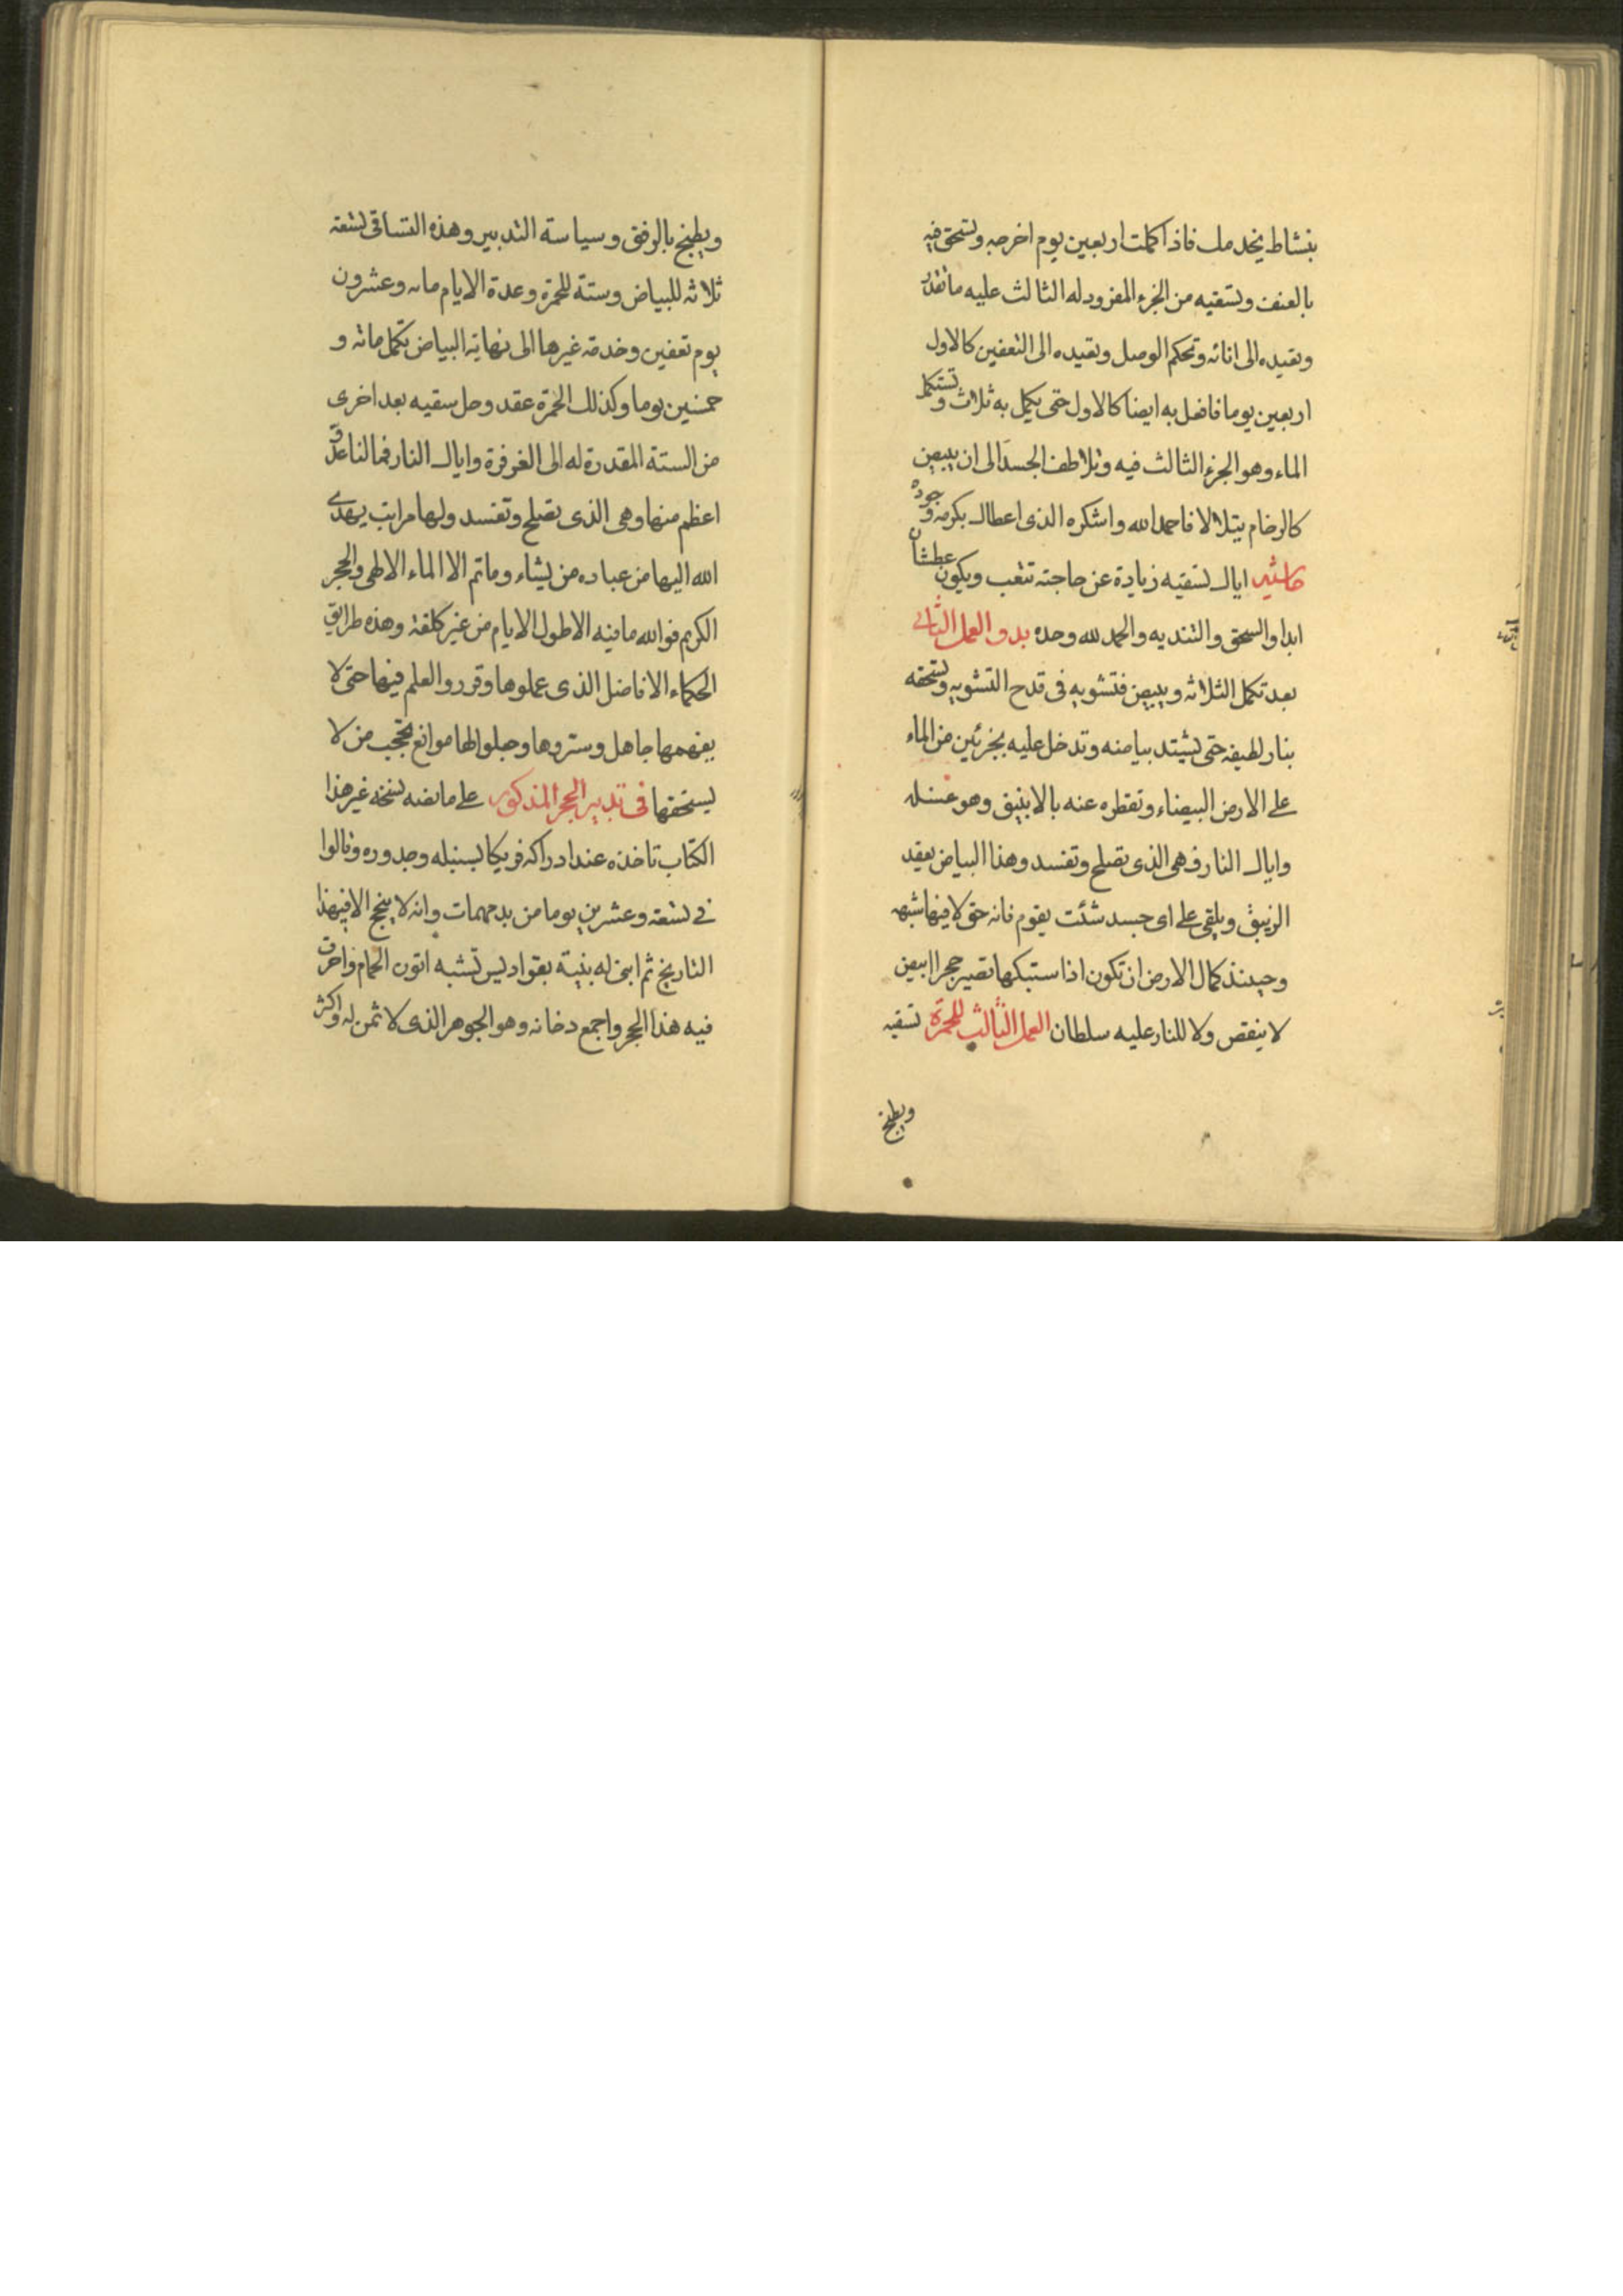 بنشاط يخدمك فاذا كملت اربعين يوم اخرجه وتسحق فيه
بالعنف وتسقيه من الجزء المفرود له الثالث عليه ما تقدر
وتعيده الى انائه وتحكم الوصل وتعيده الى التعفين كالاول
اربعين يوما فافعل به ايضا كالاول حتى يكمل به ثلاث وتستكمل
الماء وهو الجزء الثالث فيه وتلاطف الجسد الى ان يبيض
كالرخام يتلالا فاحمد الله واشكره الذى اعطاك بكرمه وجوده
حاشيه اياك تسقيه زيادة عن حاجته تتعب ويكون عطشان
ابدا والسحق والتنديه والحمد لله وحده بدو العمل الثانى
بعد تكمل الثلاثه ويبيض فتشويه فى قدح التشويه وتسحقه
بنار لطيفه حتى يشتد بياضه وتدخل عليه بجزئين من الماء
على الارض البيضاء وتقطره عنه بالانبيق وهو غسله
واياك النار فهى الذى تصلح وتفسد وهذا البياض يعقد
الزيبق ويلقى على اى جسد شئت يقوم فانه حق لا فيها شبهه
وحينئذ كمال الارض ان تكون اذا ستبكها تصير حجرا ابيض
لا ينقص ولا للنار عليه سلطان العمل الثالث للحمرة تسقيه
ويطبخ
ويطبخ بالرفق وسياسة التدبير وهذه التساقى تسعه
ثلاثه للبياض وستة للحمرة وعدة الايام مايه وعشرون
يوم تعفين وخدمة غيرها الى نهاية البياض تكمل مائه و
خمسين يوما وكذلك الحمرة عقد وحل سقيه بعد اخرى
من الستة المقدرة له الى الغرفرة واياك النار فما لنا عدو
اعظم منها وهى الذى تصلح وتفسد ولها مراتب يهدى
الله اليها من عباده من يشاء وما تم الا الماء الالهى والحجر
الكريم فوالله ما فيه الا طول الايام من غير كلفة وهذه طرايق
الحكماء الافاضل الذى عملوها وقرروا العلم فيها حتى لا
يفهمها جاهل وستروها وجعلوا لها موانع تحجب من لا
يستحقها فى تدبير الحجر المذكور على ما نصه نسخه غير هذا
الكتاب تاخذه عند ادراكه فريكا بسنبله وجدوره وقالوا
فى تسعة وعشرين يوما من برمهات وانه لا ينجح الا فى هذا
التاريخ ثم ابنى له بنية بقواديس تشبه اتون الحمام واحرق
فيه هذا الحجر واجمع دخانه وهو الجوهر الذى لا ثمن له واكثر